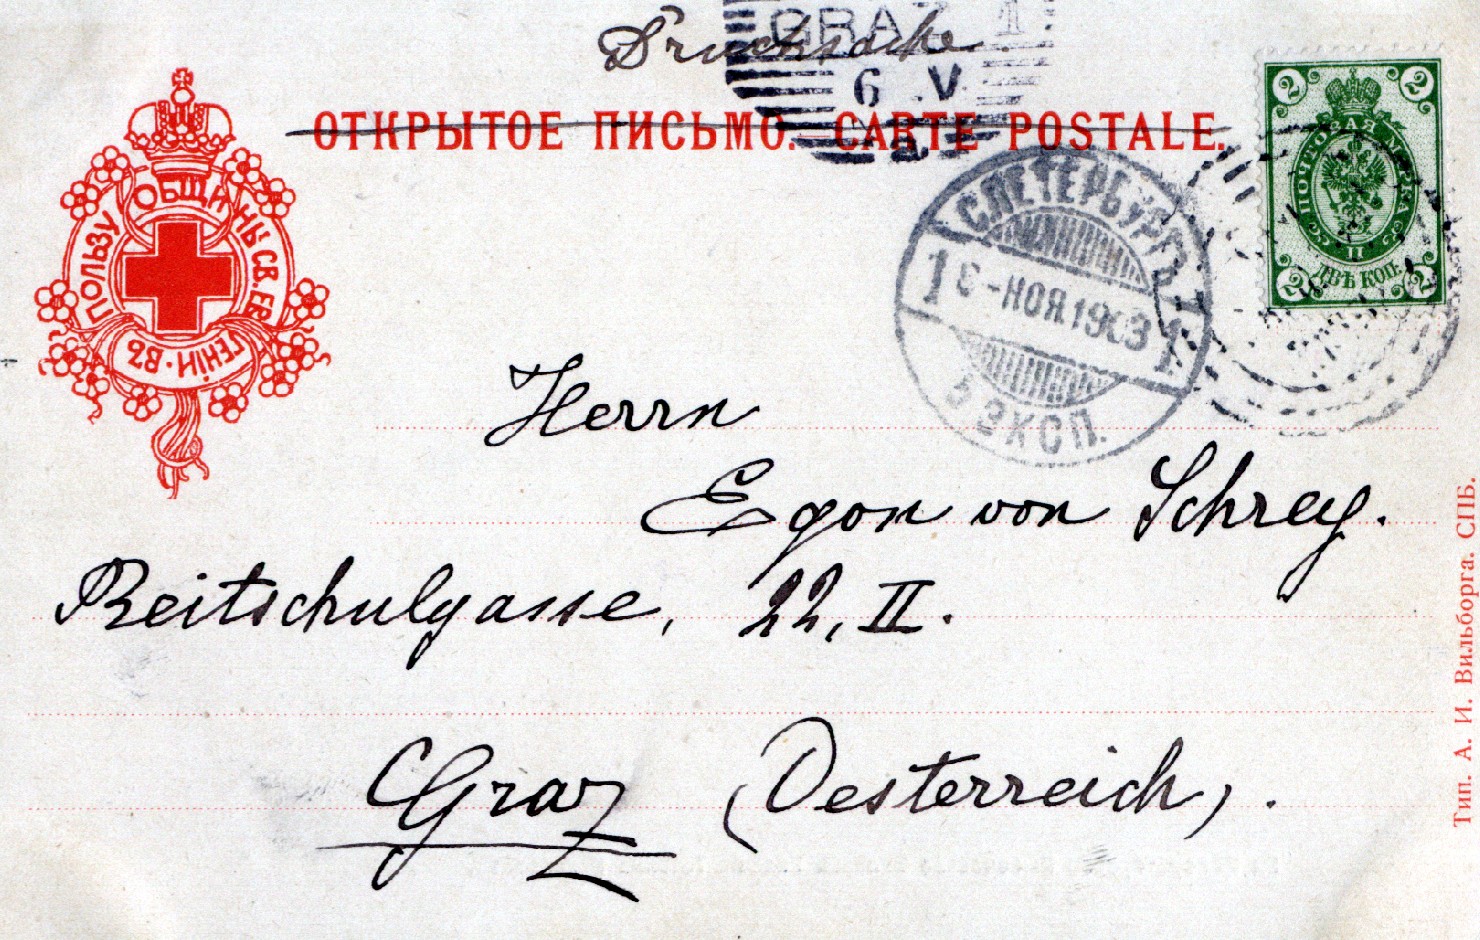 Drucksache.
GRAZ 1
6 . V
ОТКРЫТОЕ ПИСЬМО. — CARTE POSTALE.
ВЪ ПОЛЬЗУ ОБЩИНЫ СВ. ЕВГЕНІИ
С.ПЕТЕРБУРГЪ
НОЯ 1903
1
1
ЭКСП.
2 2
ПОЧТОВАЯ МАРКА
II
ДВѢ КОП.
2 2
Herrn
Egon von Schrey.
Reitschulgasse, 22, II.
Graz (Oesterreich).
Тип. А. И. Вильборга. СПБ.